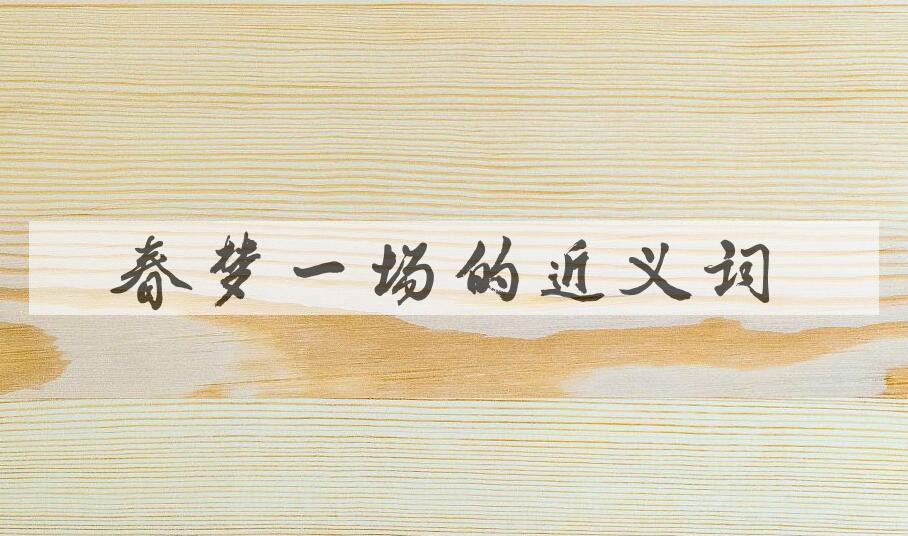 春梦一场的近义词